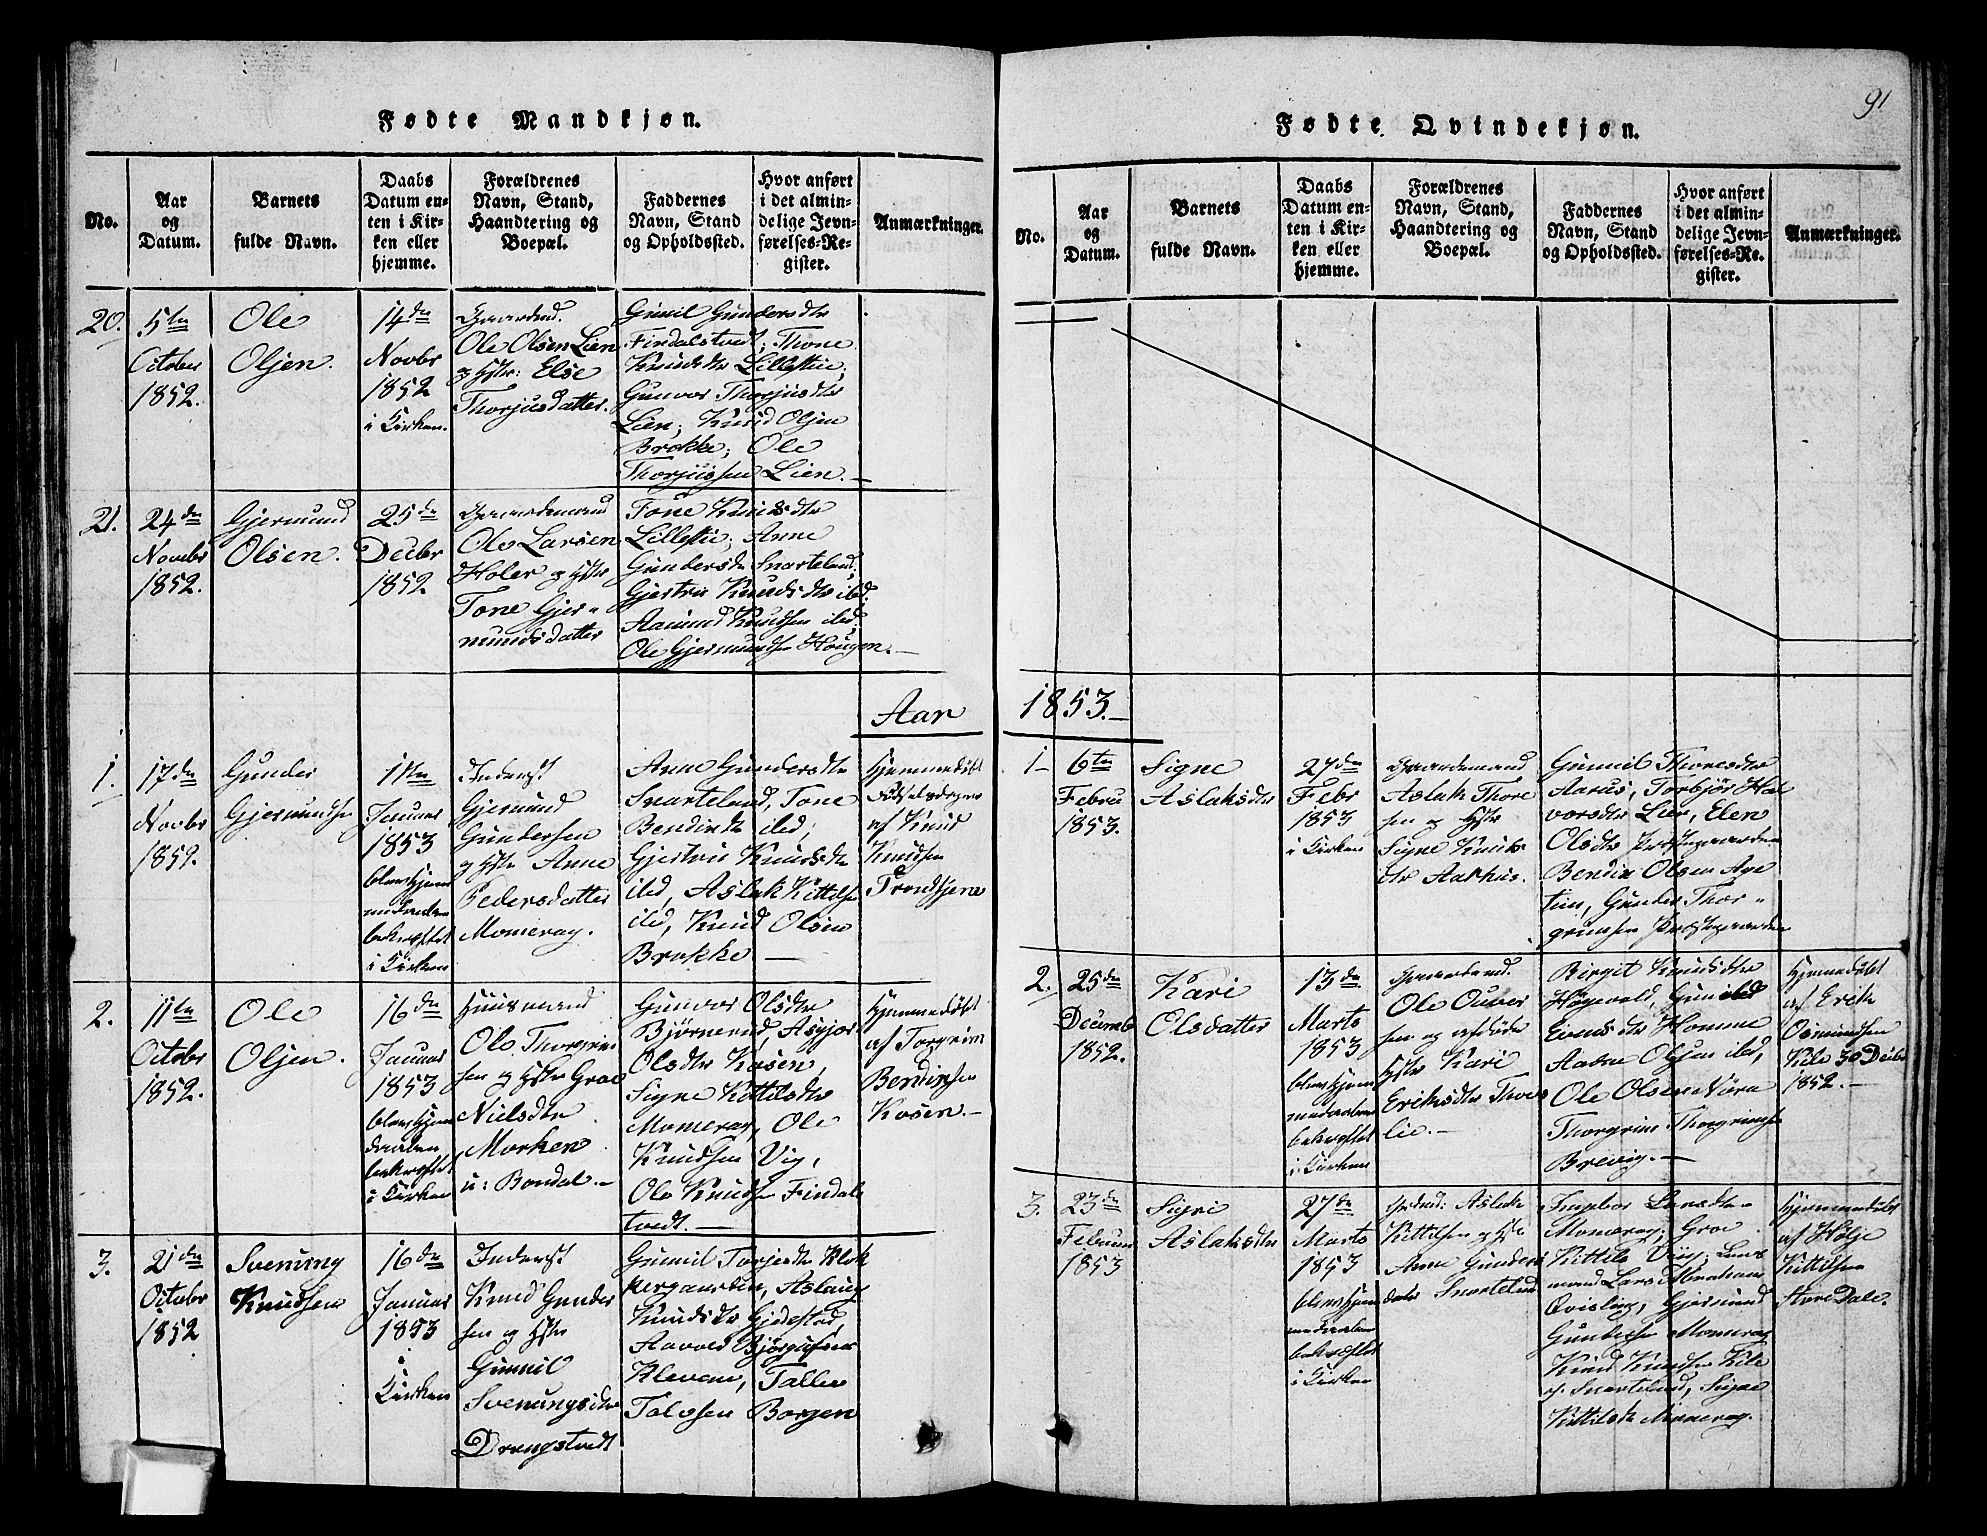 91
Fødte Mandkjøn.
No.
Aar
og
Datum.
Barnets
fulde Navn.
Daabs
Datum en-
ten i Kir-
ken eller
hjemme.
Forældrenes
Navn, Stand,
Haandtering og
Boepæl.
Faddernes
Navn, Stand
og Opholdssted.
Hvor anført
i det almin-
delige Jevn-
førelses-Re-
gister.
Anmærkninger.
20.
5te
October
1852.
Ole
Olsen.
14de
Novbr
1852
i Kirken.
Gaardmd.
Ole Olsen Lien
og Hstr: Else
Thorjusdatter.
Gunil Gundersdtr
Findalstvedt; Thone
Knudsdtr Lillestie;
Gunvor Thorjusdtr
Lien; Knud Olsen
Brokke; Ole
Thorjussen Lien.
21.
24de
Novbr
1852.
Gjermund
Olsen.
25de
Decbr
1852
Gaardemand
Ole Larsen
Holer og Hstr
Tone Gjer-
mundsdatter
Tone Knudsdtr
Lillestie; Anne
Gundersdtr Snartelund;
Gjertru Knudsdtr ibd.
Aamund Knudsen ibd.
Ole Gjermundsen Hougen.
Aar
1.
17de
Novbr
1852.
Gunder
Gjermundsen
11te
Januar
1853
blev hjem-
medaaben
bekræftet
i Kirken
Inderst
Gjermund
Gundersen
og Hstr Anne
Pedersdatter
Momerag.
Anne Gundersdtr
Snartelund, Tone
Bendixdtr ibd,
Gjertru Knudsdtr
ibd, Aslak Kittelsen
ibd, Knud Olsen
Brokke
Hjemmedøbt
af Knud
Knudsen
2.
11te
October
1852.
Ole
Olsen.
16de
Januar
1853
blev hjem
daaben
bekræftet
i Kirken
Huusmand
Ole Thorgrim
sen og Hstr Groe
Nielsdtr
Morken
u: Bondal.
Gunvor Olsdtr
Bjørnerud, Asgjer
Olsdtr Kosen,
Signe Kittilsdtr
Momerag, Ole
Knudsen Vig,
Ole Knudsen Findals
tvedt.
Hjemmedøbt
af Torgrim
Bendixsen
Kosen.
3.
21de
October
1852
Svenung
Knudsen
16de
Januar
1853
i
Kirken
Inderst
Knud Gunder
sen og Hstr
Gunnil
Svenungsdtr
Drangstvedt
Gunnil Torjesdtr Klok
kergaarden, Aslaug
Knudsdtr Gjdestad,
Aavold Bjørgufsen
Kleven, Talle
Talefsen Borgen
Fødte Qvindekjøn.
No.
Aar
og
Datum.
Barnets
fulde Navn.
Daabs
Datum en-
ten i Kir-
ken eller
hjemme.
Forældrenes
Navn, Stand,
Haandtering og
Boepæl.
Faddernes
Navn, Stand
og Opholdssted.
Hvor anført
i det almin-
delige Jevn-
førelses-Re-
gister.
Anmærkninger.
1853.
1
6te
Febru
1853.
Signe
Aslaksdtr
27de
Febr
1853
i Kirken
Gaardemand
Aslak Thore
sen og Hstr
Signe Knuds
dtr Aarhus.
Gunnil Thoresdtr
Aarus, Torbjør Hal
vorsdtr Lien, Elen
Olsdtr Præstegaarden
Bendix Olsen Age
tun, Gunder Thor-
grimsen Præstegaarden
2.
25de
Decemb
1852.
Kari
Olsdatter
13de
Marts
1853
blev hjem
medaaben
bekræftet
i Kirken
Gaardmd.
Ole Ouver
sen og afdøde
Hstr Kari
Eriksdtr Thors
lie.
Birgit Knudsdtr
Høgevold, Gunild
Eivindsdtr Homme
Aasne Olsen ibd,
Ole Olsen Nøra
Thorgrim Thorgrimsen
Brevig.
Hjemmedøbt
af Erik
Osmundsen
Kile 30 Decbr
1852.
3.
23de
Februar
1853
Sigri
Aslaksdtr
27de
Marts
1853
blev hjem
medaaben
bekræftet
i Kirken
Grdmd: Aslak
Kittilsen og Hst
Anne Gunders
datr Snartelund
Ingebor Larsdtr
Momerag; Groe
Kittils Viig; Lens
mand Lars Abraham
Qvisling, Gjermund
Gundersen Momerag
Knud Knudsen Kile
og Snartelund, Signe
Kittilsdtr Momerag.
Hjemmedøbt
af Holje
Kittilsen
Store Dale.